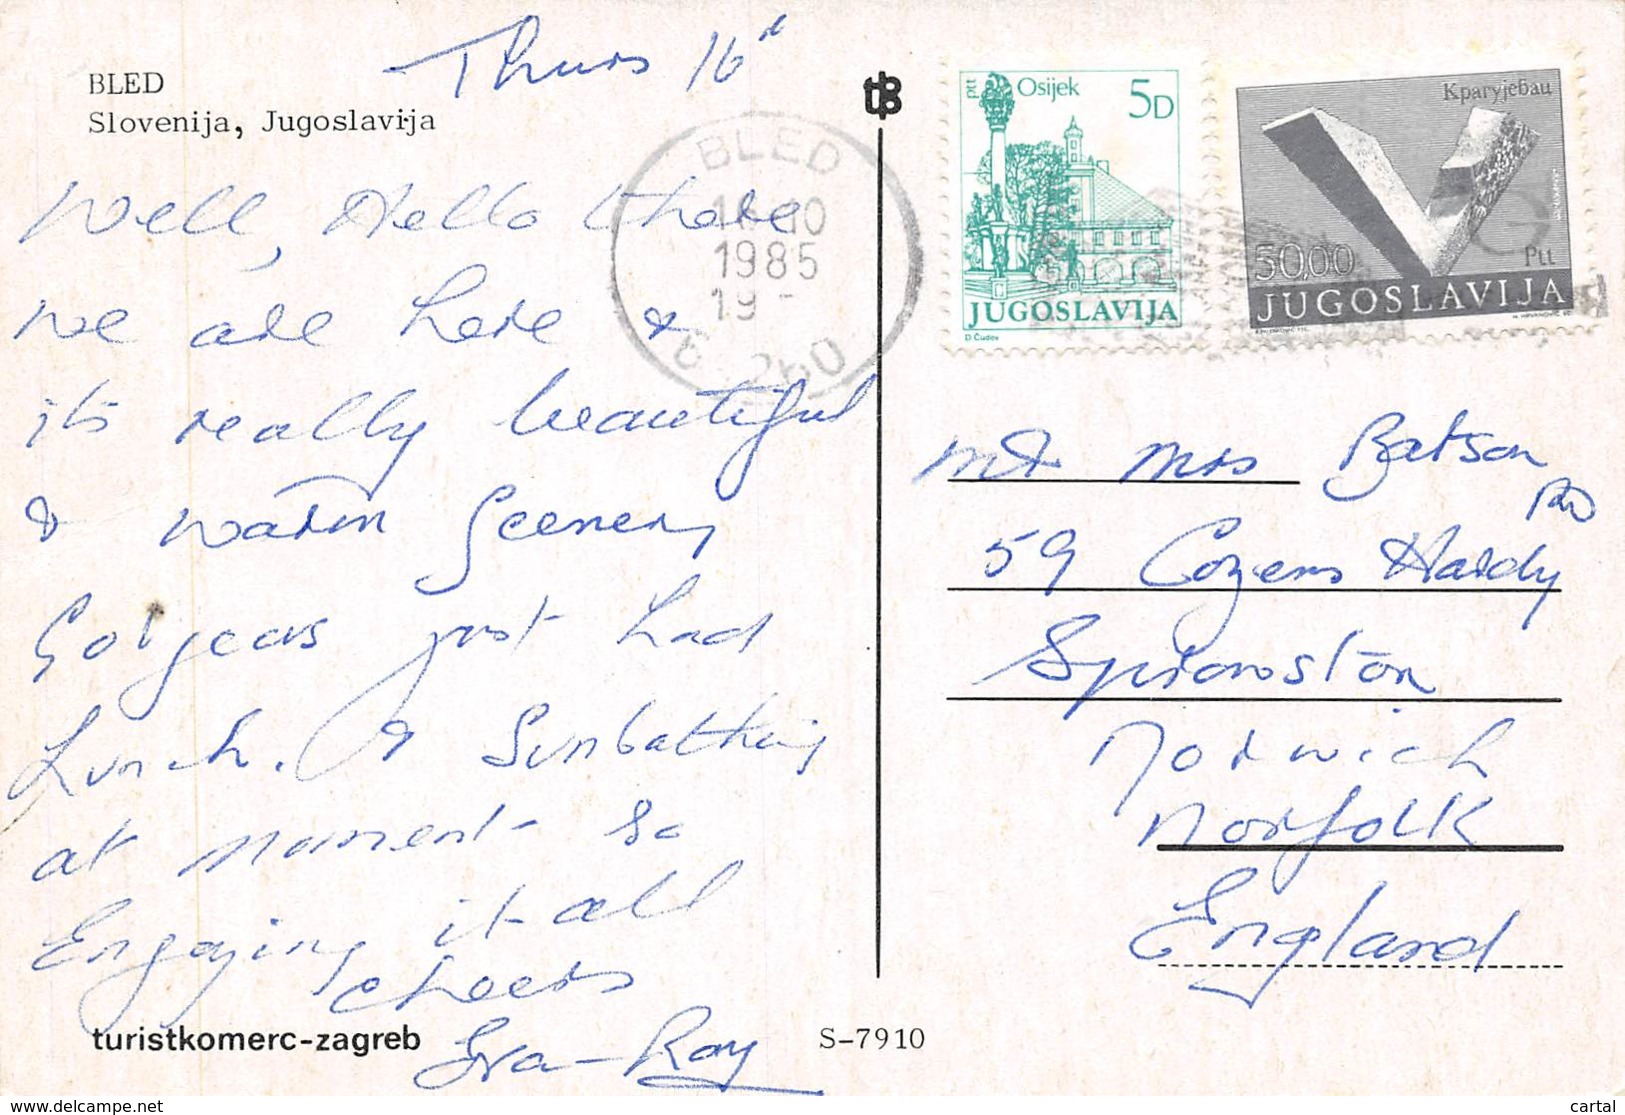 Thurs 16
BLED
Slovenija, Jugoslavija
Well, Hello there
we are here &
its really beautiful
& warm Scenery
Gorgeous just had
Lunch. & Sunbathing
at moment so
Enjoying it all
cheers
Eva - Ray
turistkomerc-zagreb
S-7910
BLED
10
1985
19 -
ptt Osijek 5D
JUGOSLAVIJA
D. Čudov
Крагујевац
50,00 Ptt
JUGOSLAVIJA
Mr & Mrs Batson
59 Cozens Hardy RD
Sprowston
Norwich
Norfolk
England
© delcampe.net
cartal